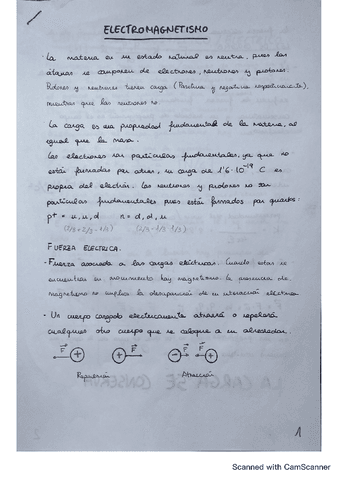 ELECTROMAGNETISMO
· La materia en su estado natural es neutra, pues los
átomos se componen de electrones, neutrones y protones.
Protones y neutrones tienen carga (Positiva y negativa respectivamente),
mientras que los neutrones no.
La carga es una propiedad fundamental de la materia, al
igual que la masa.
Los electrones son partículas fundamentales, ya que no
están formadas por otras, su carga de 1'6·10⁻¹⁹ C es
propia del electrón. Los neutrones y protones no son
partículas fundamentales pues están formados por quarks:
p+ = u, u, d n = d, d, u
(2/3+2/3-1/3) (2/3-1/3-1/3)
FUERZA ELÉCTRICA.
· Fuerza asociada a las cargas eléctricas. Cuando estas se
encuentran en movimiento hay magnetismo. La presencia de
magnetismo no implica la desaparición de la interacción eléctrica
· Un cuerpo cargado eléctricamente atraerá o repelerá
cualquier otro cuerpo que se coloque a su alrededor.
F + + F - F F +
Repulsión Atracción
1
Scanned with CamScanner